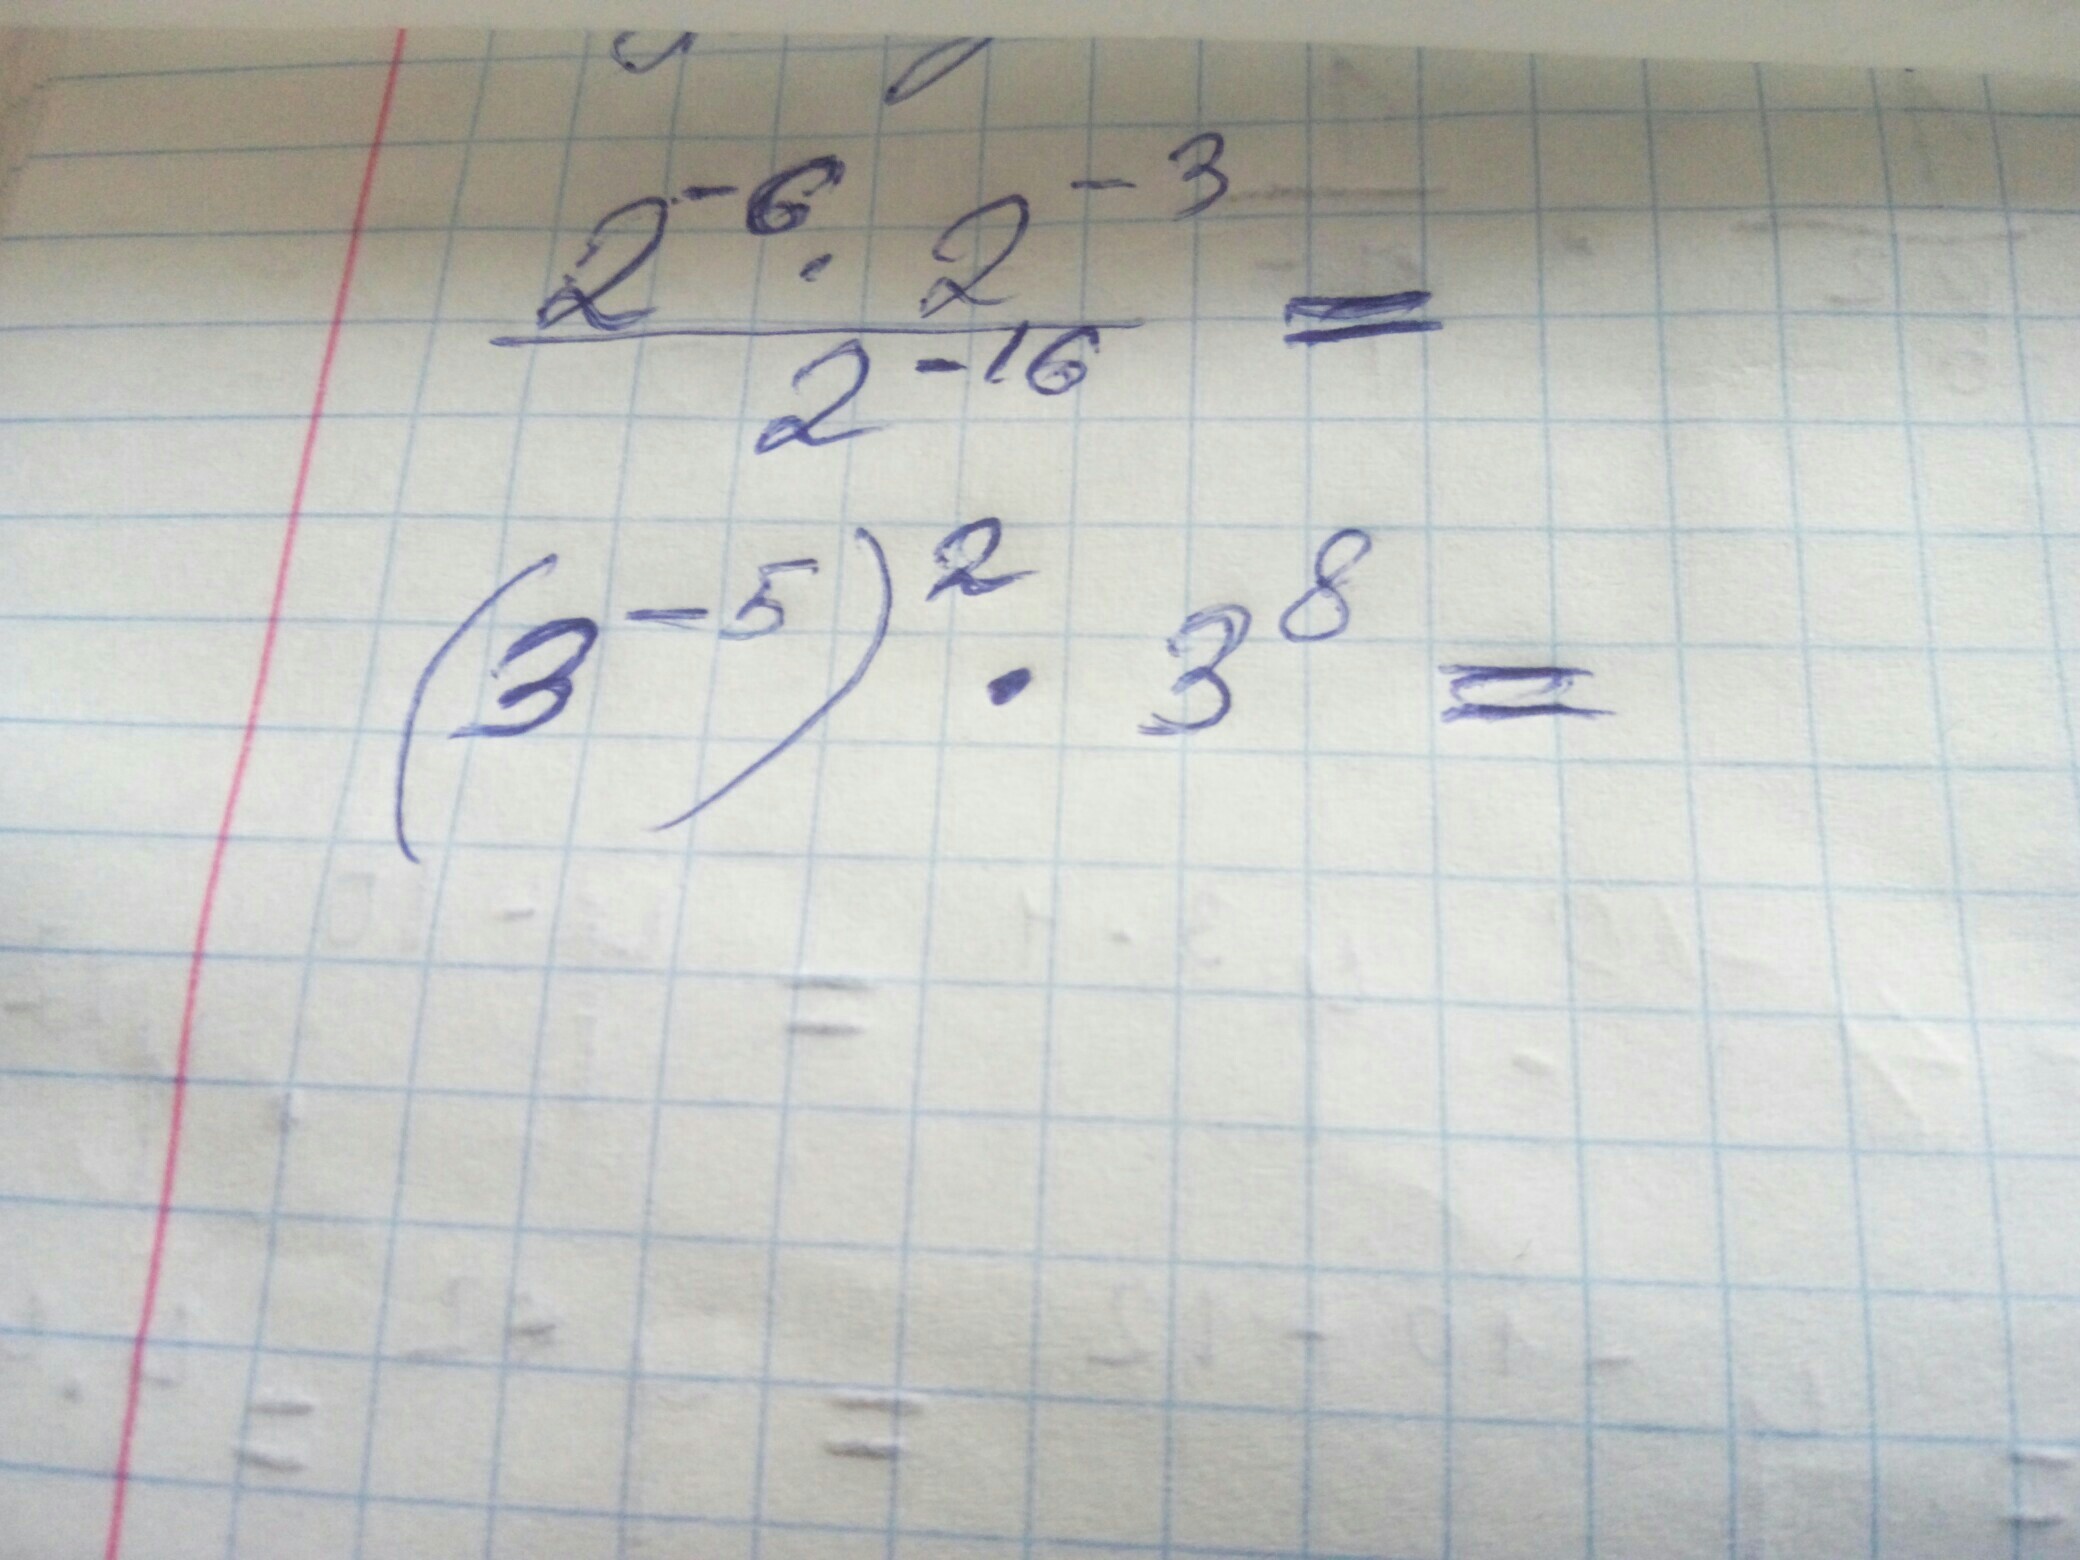 2⁻⁶ · 2⁻³ =
2⁻¹⁶
(3⁻⁵)² · 3⁸ =